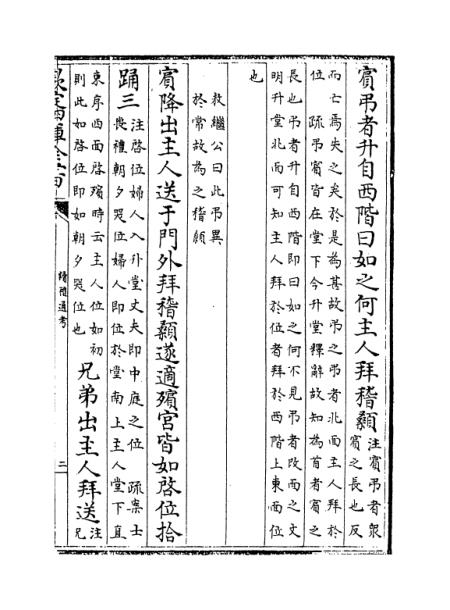 賓弔者升自西階曰如之何主人拜稽顙
注賓弔者眾
賓之長也反
而亡焉失之矣於是為甚故弔之弔者北面主人拜於
位 疏弔賓皆在堂下今升堂釋辭故知為首者賓之
長也弔者升自西階即曰如之何不見弔者改西之文
明升堂北面可知主人拜於位者拜於西階上東西位
也
敖繼公曰此弔異
於常故為之稽顙
賓降出主人送于門外拜稽顙遂適殯宮皆如啓位拾
踊三
注啓位婦人入升堂丈夫即中庭之位 疏案士
喪禮朝夕哭位婦人即位於堂南上主人堂下直
東序西面啓殯時云主人位如初
則此如啓位即如朝夕哭位也
兄弟出主人拜送
注
兄
讀禮通考
二